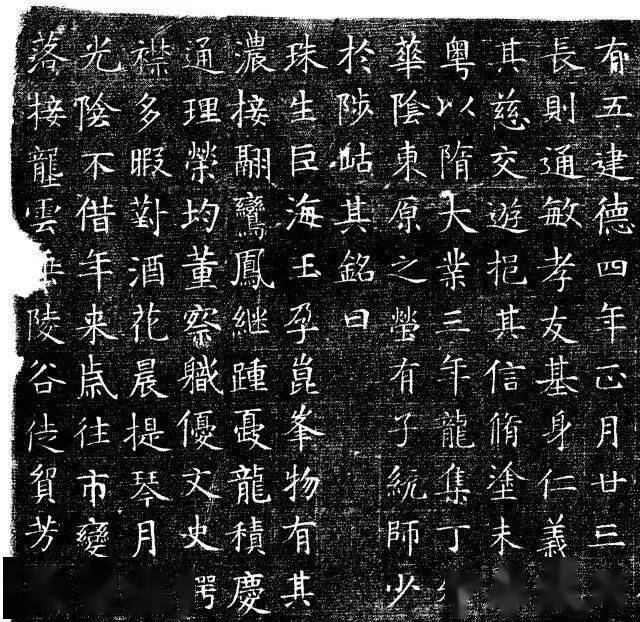 有五建德四年正月廿三
長則通敏孝友基身仁義
其慈交遊挹其信脩塗未
粵以隋大業三年龍集丁
華陰東原之塋有子統師少
於陟岵其銘曰
珠生巨海玉孕崑峯物有其
濃接翮鸞鳳継踵夔龍積慶
通理榮均董察職優文史
襟多暇對酒花晨提琴月
光陰不借年来歲往市變
落接龍雲陵谷徒貿芳